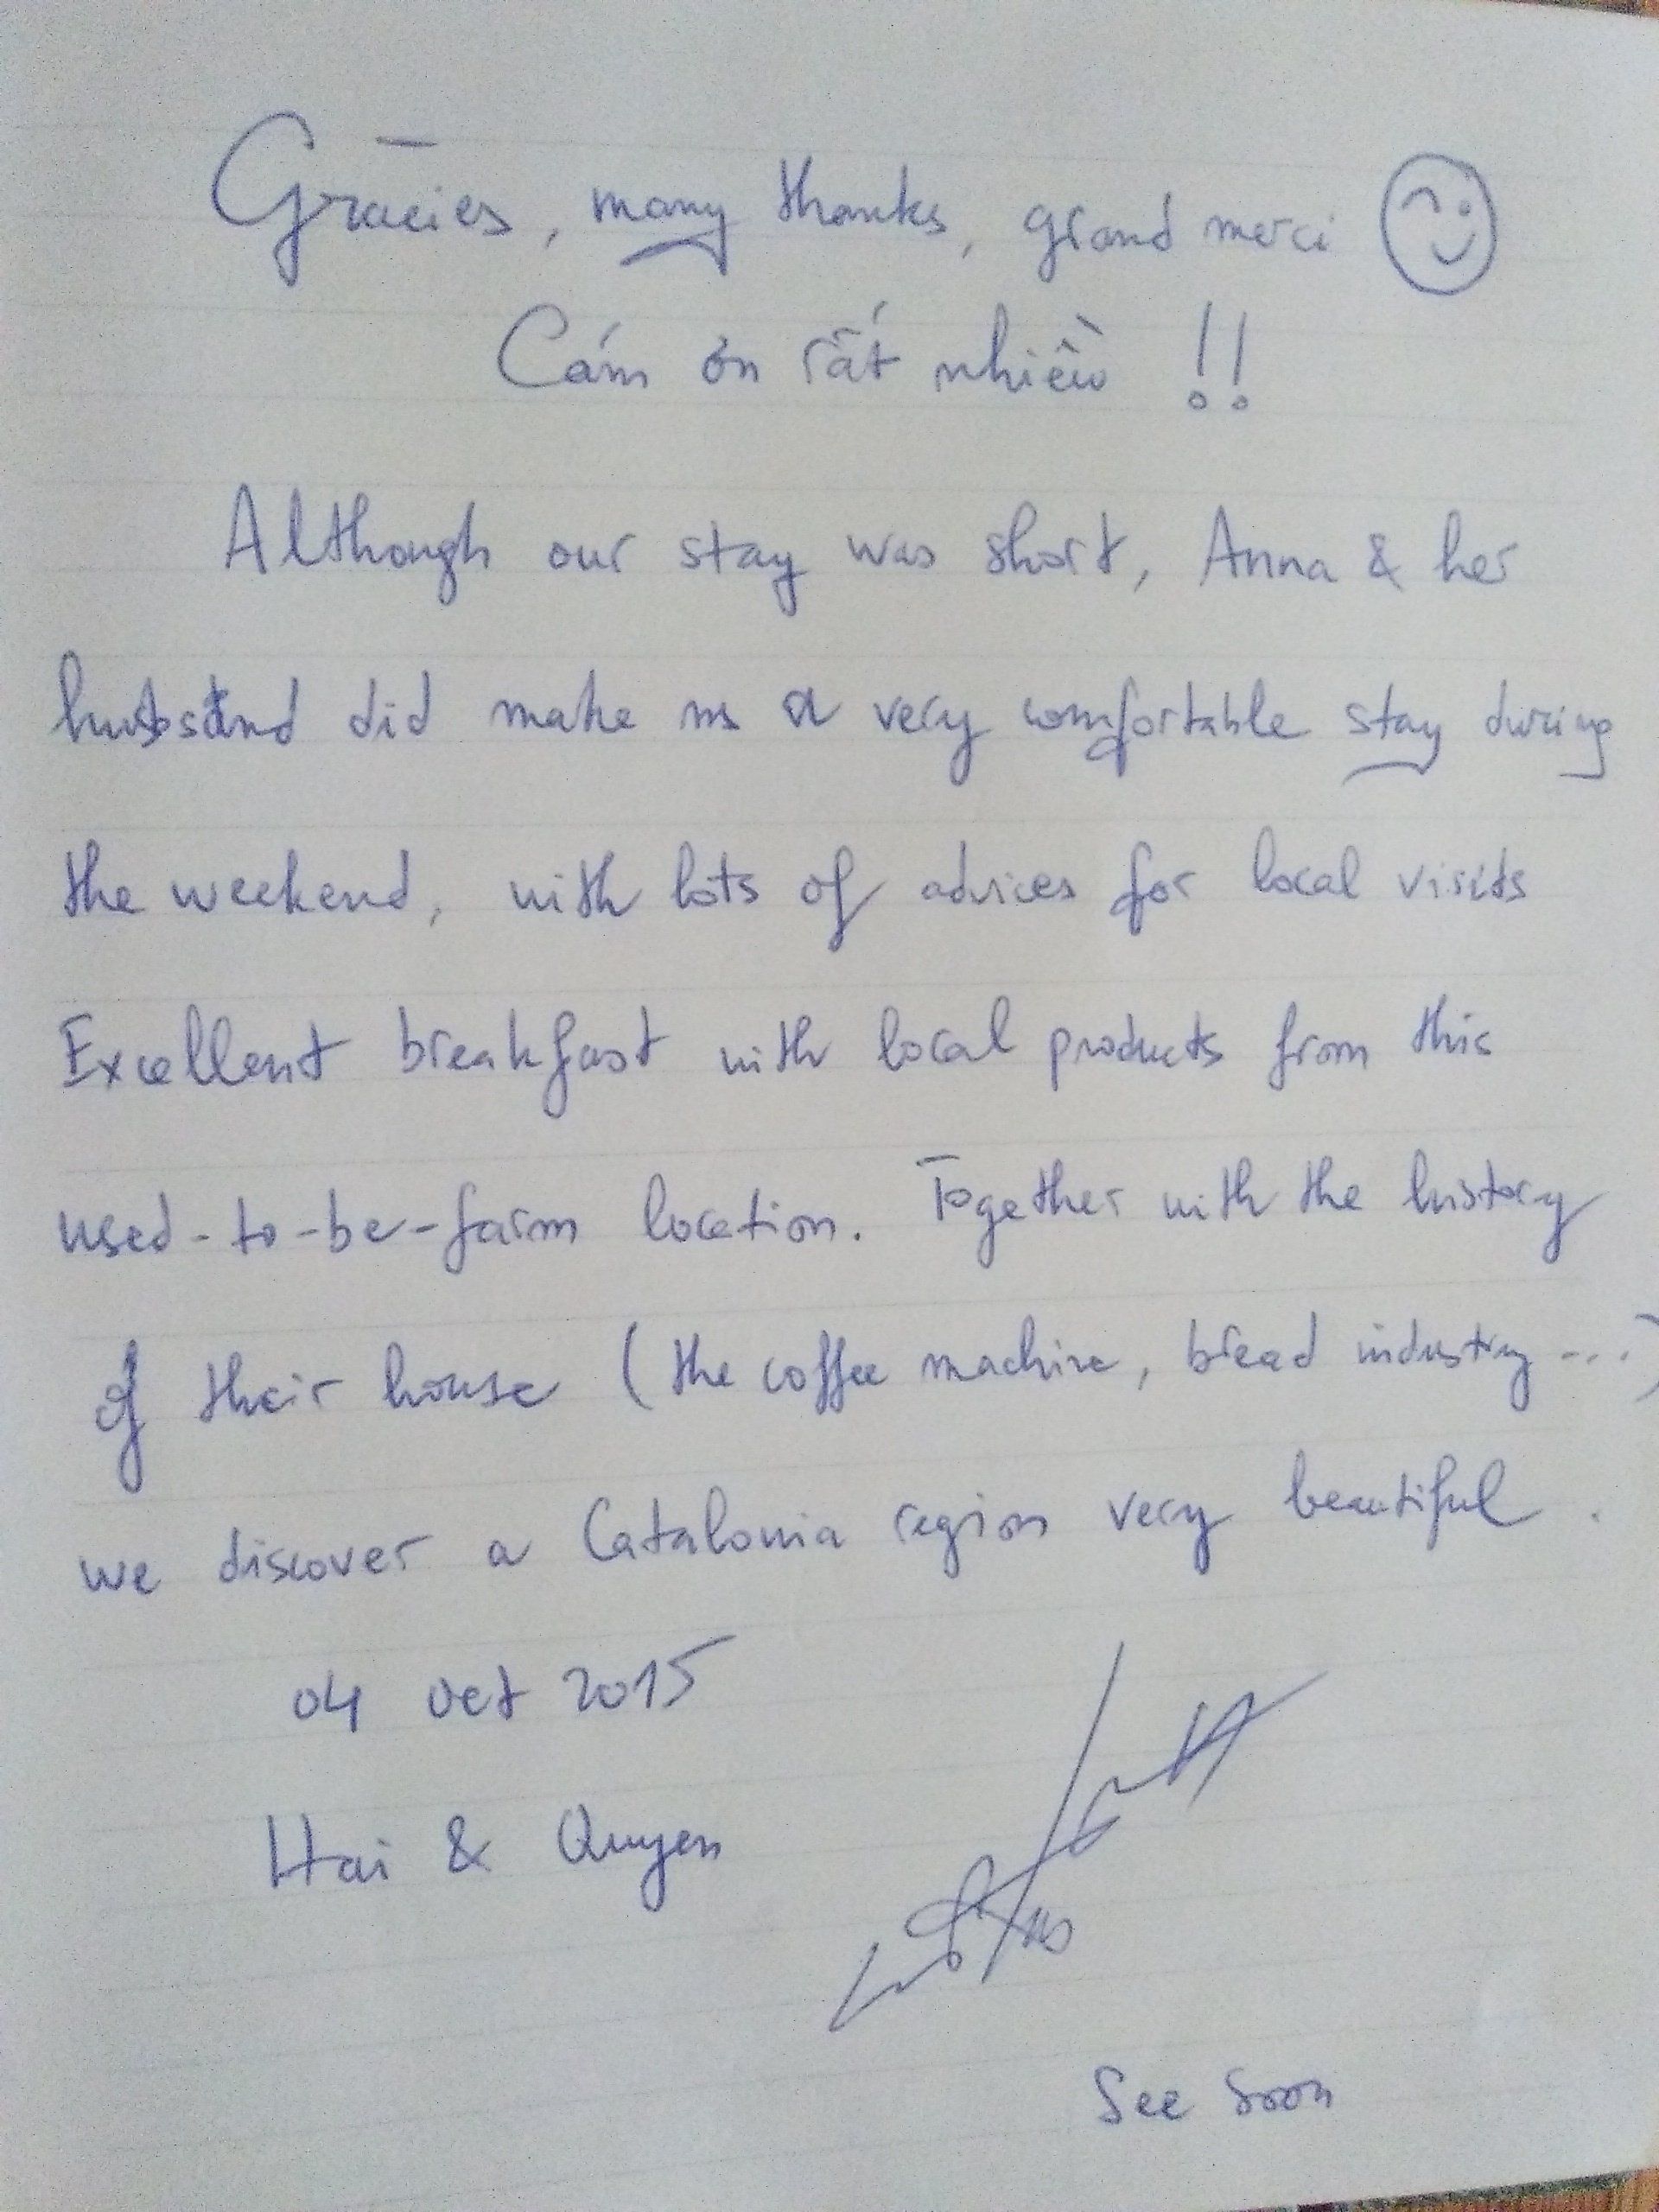 Gràcies, many thanks, grand merci
Cám ơn rất nhiều !!
Although our stay was short, Anna & her
husband did make us a very comfortable stay during
the weekend, with lots of advices for local visits
Excellent breakfast with local products from this
used-to-be-farm location. Together with the history
of their house (the coffee machine, bread industry ...)
we discover a Catalonia region very beautiful.
04 Oct 2015
Hai & Quyen
See soon